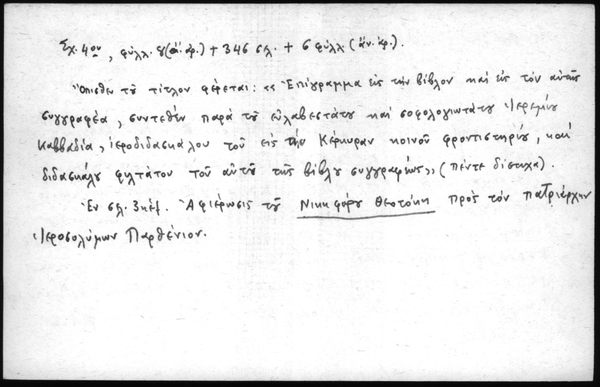 Σχ. 4ον, φύλλ. 8(ἀ.ἀρ.) + 346 σλ. + 6 φύλλ. (ἀν. ἀρ.).
Ὄπισθεν τοῦ τίτλου φέρεται: «Ἐπίγραμμα εἰς τὴν βίβλον καὶ εἰς τὸν αὐτῆς
συγγραφέα, συντεθὲν παρὰ τοῦ εὐλαβεστάτου καὶ σοφολογιωτάτου Ἱερεμίου
Καββαδία, ἱεροδιδασκάλου τοῦ εἰς τὴν Κέρκυραν κοινοῦ φροντιστηρίου, καὶ
διδασκάλου φιλτάτου τοῦ αὐτοῦ τῆς βίβλου συγγραφέως» (πέντε δίστιχα).
Ἐν σλ. 3κἑξ. Ἀφιέρωσις τοῦ Νικηφόρου Θεοτόκη πρὸς τὸν πατριάρχην
Ἱεροσολύμων Παρθένιον.